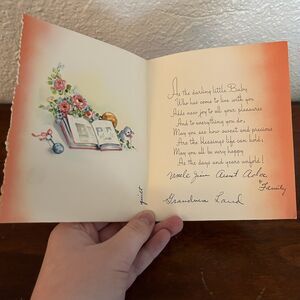 As the darling little Baby
Who has come to live with you
Adds new joy to all your pleasures
And to everything you do,
May you see how sweet and precious
Are the blessings life can hold;
May you all be very happy
As the days and years unfold!
Uncle Jim Aunt
Family
Grandma